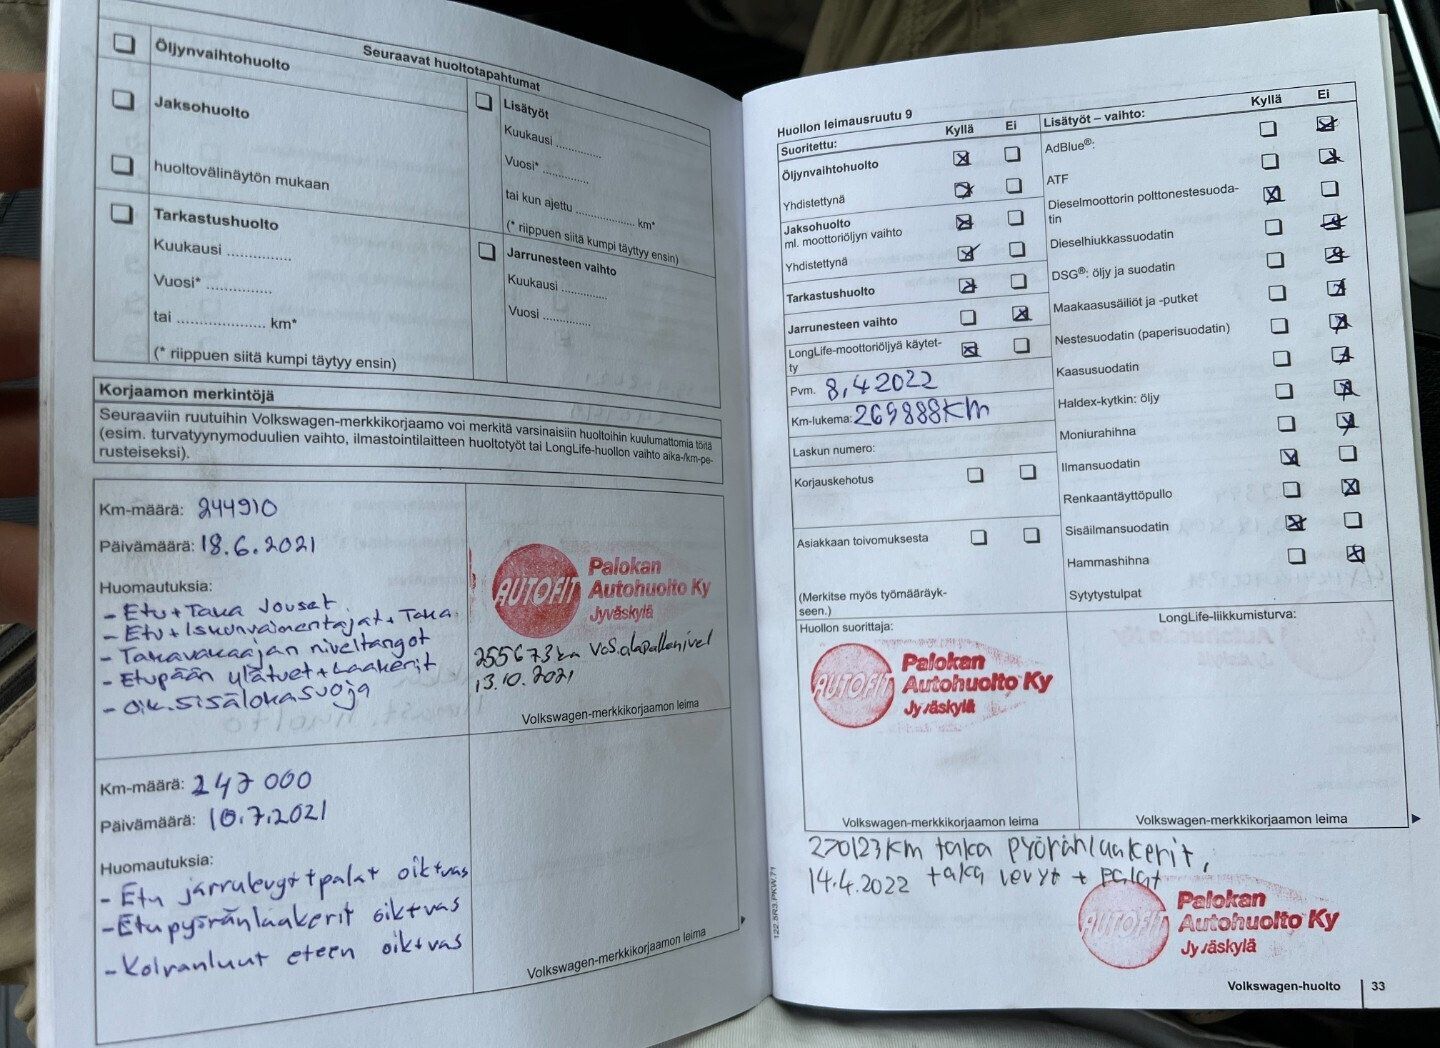 Seuraavat huoltotapahtumat
Öljynvaihtohuolto
Jaksohuolto
huoltovälinäytön mukaan
Tarkastushuolto
Kuukausi ...............
Vuosi* ...............
tai .................... km*
(* riippuen siitä kumpi täytyy ensin)
Lisätyöt
Kuukausi ..............
Vuosi* ..............
tai kun ajettu .................. km*
(* riippuen siitä kumpi täyttyy ensin)
Jarrunesteen vaihto
Kuukausi ..............
Vuosi ..............
Korjaamon merkintöjä
Seuraaviin ruutuihin Volkswagen-merkkikorjaamo voi merkitä varsinaisiin huoltoihin kuulumattomia töitä
(esim. turvatyynymoduulien vaihto, ilmastointilaitteen huoltotyöt tai LongLife-huollon vaihto aika-/km-pe-
rusteiseksi).
Km-määrä: 244910
Päivämäärä: 18.6.2021
Huomautuksia:
- Etu+Taka Jouset
- Etu+Iskunvaimentajat+Taka
- Takavakaajan niveltangot
- Etupään ylätuet+Laakerit
- Oik.sisälokasuoja
AUTOFIT
Palokan
Autohuolto Ky
Jyväskylä
255673km Vas.alapallonivel
13.10.2021
Volkswagen-merkkikorjaamon leima
Km-määrä: 247 000
Päivämäärä: 10.7.2021
Huomautuksia:
- Etu jarrulevyt+palat oik+vas
- Etupyöränlaakerit oik+vas
- Koiranluut eteen oik+vas
Volkswagen-merkkikorjaamon leima
Huollon leimausruutu 9
Suoritettu: Kyllä Ei
Öljynvaihtohuolto
Yhdistettynä
Jaksohuolto
ml. moottoriöljyn vaihto
Yhdistettynä
Tarkastushuolto
Jarrunesteen vaihto
LongLife-moottoriöljyä käytet-
ty
Pvm. 8.4.2022
Km-lukema: 269888km
Laskun numero:
Korjauskehotus
Asiakkaan toivomuksesta
(Merkitse myös työmääräyk-
seen.)
Lisätyöt – vaihto: Kyllä Ei
AdBlue®:
ATF
Dieselmoottorin polttonestesuoda-
tin
Dieselhiukkassuodatin
DSG®: öljy ja suodatin
Maakaasusäiliöt ja -putket
Nestesuodatin (paperisuodatin)
Kaasusuodatin
Haldex-kytkin: öljy
Moniurahihna
Ilmansuodatin
Renkaantäyttöpullo
Sisäilmansuodatin
Hammashihna
Sytytystulpat
Huollon suorittaja:
AUTOFIT
Palokan
Autohuolto Ky
Jyväskylä
Volkswagen-merkkikorjaamon leima
LongLife-liikkumisturva:
Volkswagen-merkkikorjaamon leima
270123km taka pyöränlaakerit,
14.4.2022 taka levyt + palat
AUTOFIT
Palokan
Autohuolto Ky
Jyväskylä
122.5R3.PKW.71
Volkswagen-huolto 33